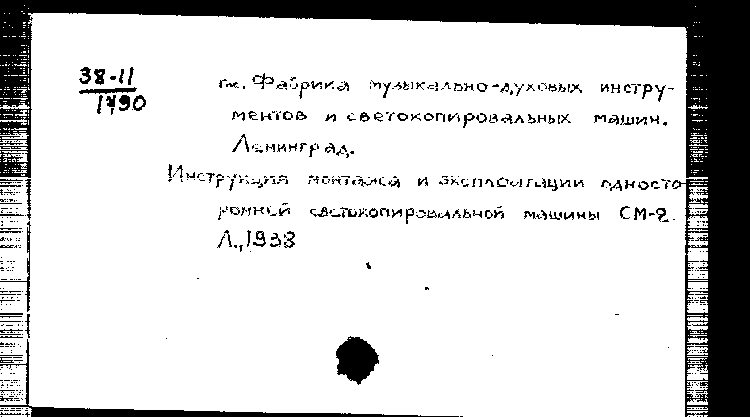 38-11
1790
см. Фабрика музыкально-духовых инстру-
ментов и светокопировальных машин.
Ленинград.
Инструкция монтажа и эксплоатации односто-
ронней светокопировальной машины СМ-2.
Л., 1938